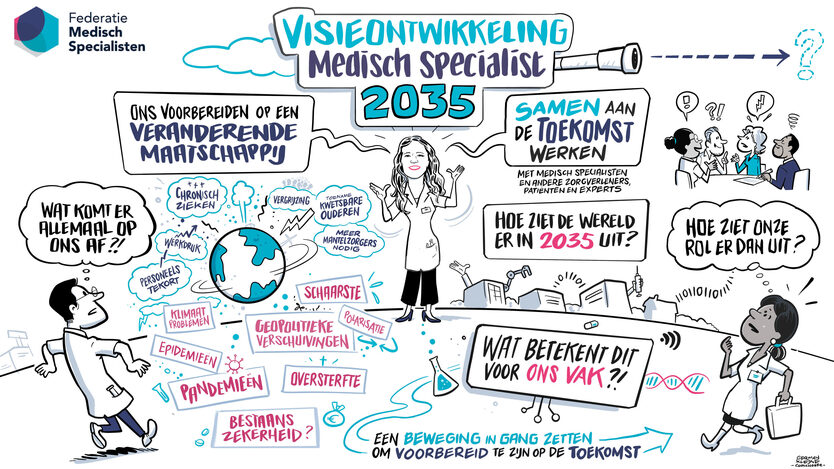 Federatie
Medisch
Specialisten
VISIEONTWIKKELING
MEDISCH SPECIALIST
2035
?
ONS VOORBEREIDEN OP EEN
VERANDERENDE
MAATSCHAPPIJ
SAMEN AAN
DE TOEKOMST
WERKEN
MET MEDISCH SPECIALISTEN
EN ANDERE ZORGVERLENERS,
PATIËNTEN EN EXPERTS
!
?!
WAT KOMT ER
ALLEMAAL OP
ONS AF?!
CHRONISCH
ZIEKEN
VERGRIJZING
TOENAME
KWETSBARE
OUDEREN
WERKDRUK
MEER
MANTELZORGERS
NODIG
PERSONEELS
TEKORT
HOE ZIET DE WERELD
ER IN 2035 UIT?
HOE ZIET ONZE
ROL ER DAN UIT?
SCHAARSTE
KLIMAAT
PROBLEMEN
GEOPOLITIEKE
VERSCHUIVINGEN
POLARISATIE
EPIDEMIEËN
PANDEMIEËN
OVERSTERFTE
BESTAANS
ZEKERHEID?
WAT BETEKENT DIT
VOOR ONS VAK?!
EEN BEWEGING IN GANG ZETTEN
OM VOORBEREID TE ZIJN OP DE TOEKOMST